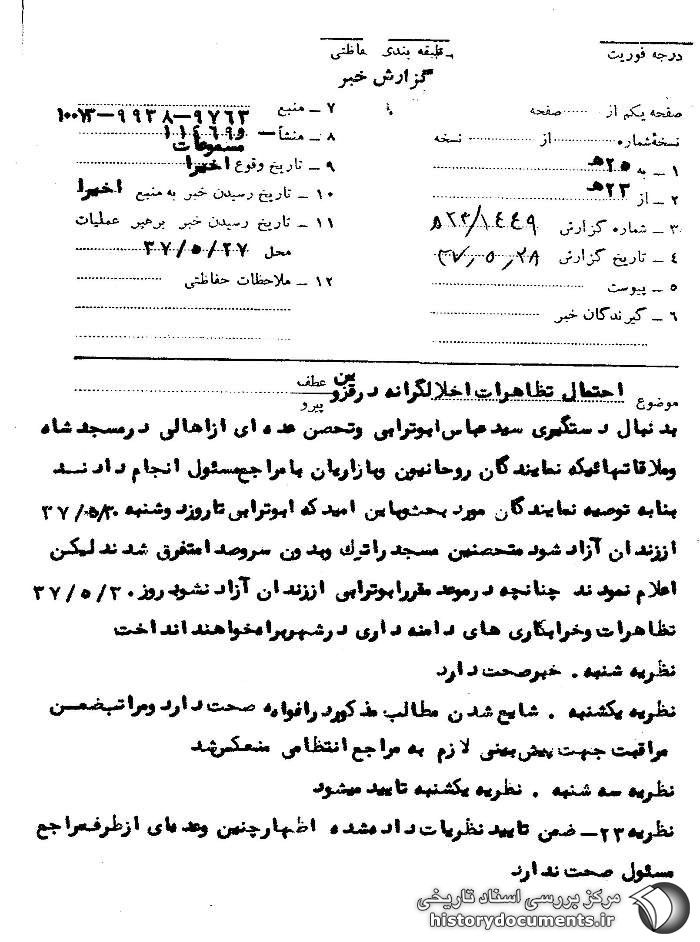 درجه فوریت
طبقه بندی حفاظتی
گزارش خبر
صفحه یکم از صفحه
نسخهٔ شماره از نسخه
۱ ــ به ۲۵هـ
۲ ــ از ۲۳هـ
۳ ــ شماره گزارش ۸۲۳/۱۴۴۹
۴ ــ تاریخ گزارش ۳۷٫۵٫۲۸
۵ ــ پیوست
۶ ــ گیرندگان خبر
۷ ــ منبع ۹۷۶۳-۹۹۳۸-۱۰۰۷۳
۸ ــ منشأ مسموعات
۹ ــ تاریخ وقوع اخیرا
۱۰ ــ تاریخ رسیدن خبر به منبع اخیرا
۱۱ ــ تاریخ رسیدن خبر برهبر عملیات
محل ۳۷/۵/۲۷
۱۲ ــ ملاحظات حفاظتی
موضوع احتمال تظاهرات اخلالگرانه در قزوین عطف
پیرو
بدنبال دستگیری سیدعباس ابوترابی وتحصن عده ای ازاهالی درمسجد شاه
وملاقاتهائیکه نمایندگان روحانیون وبازاریان با مراجع مسئول انجام دادند
بنابه توصیه نمایندگان مورد بحث وباین امید که ابوترابی تا روز دوشنبه ۳۷/۵/۳۰
اززندان آزاد شود متحصنین مسجد را ترك وبدون سروصدا متفرق شدند لیکن
اعلام نمودند چنانچه درموعد مقرر ابوترابی اززندان آزاد نشود روز ۳۷/۵/۳۰
تظاهرات وخرابکاری های دامنه داری درشهر براه خواهند انداخت
نظریه شنبه . خبر صحت دارد
نظریه یکشنبه . شایع شدن مطالب مذکور در افواه صحت دارد ومراتب ضمن
مراقبت جهت پیش بینی لازم به مراجع انتظامی منعکس شد
نظریه سه شنبه . نظریه یکشنبه تایید میشود
نظریه ۲۳ــ ضمن تایید نظریات داده شده اظهار چنین وعده ای ازطرف مراجع
مسئول صحت ندارد
مرکز بررسی اسناد تاریخی
historydocuments.ir